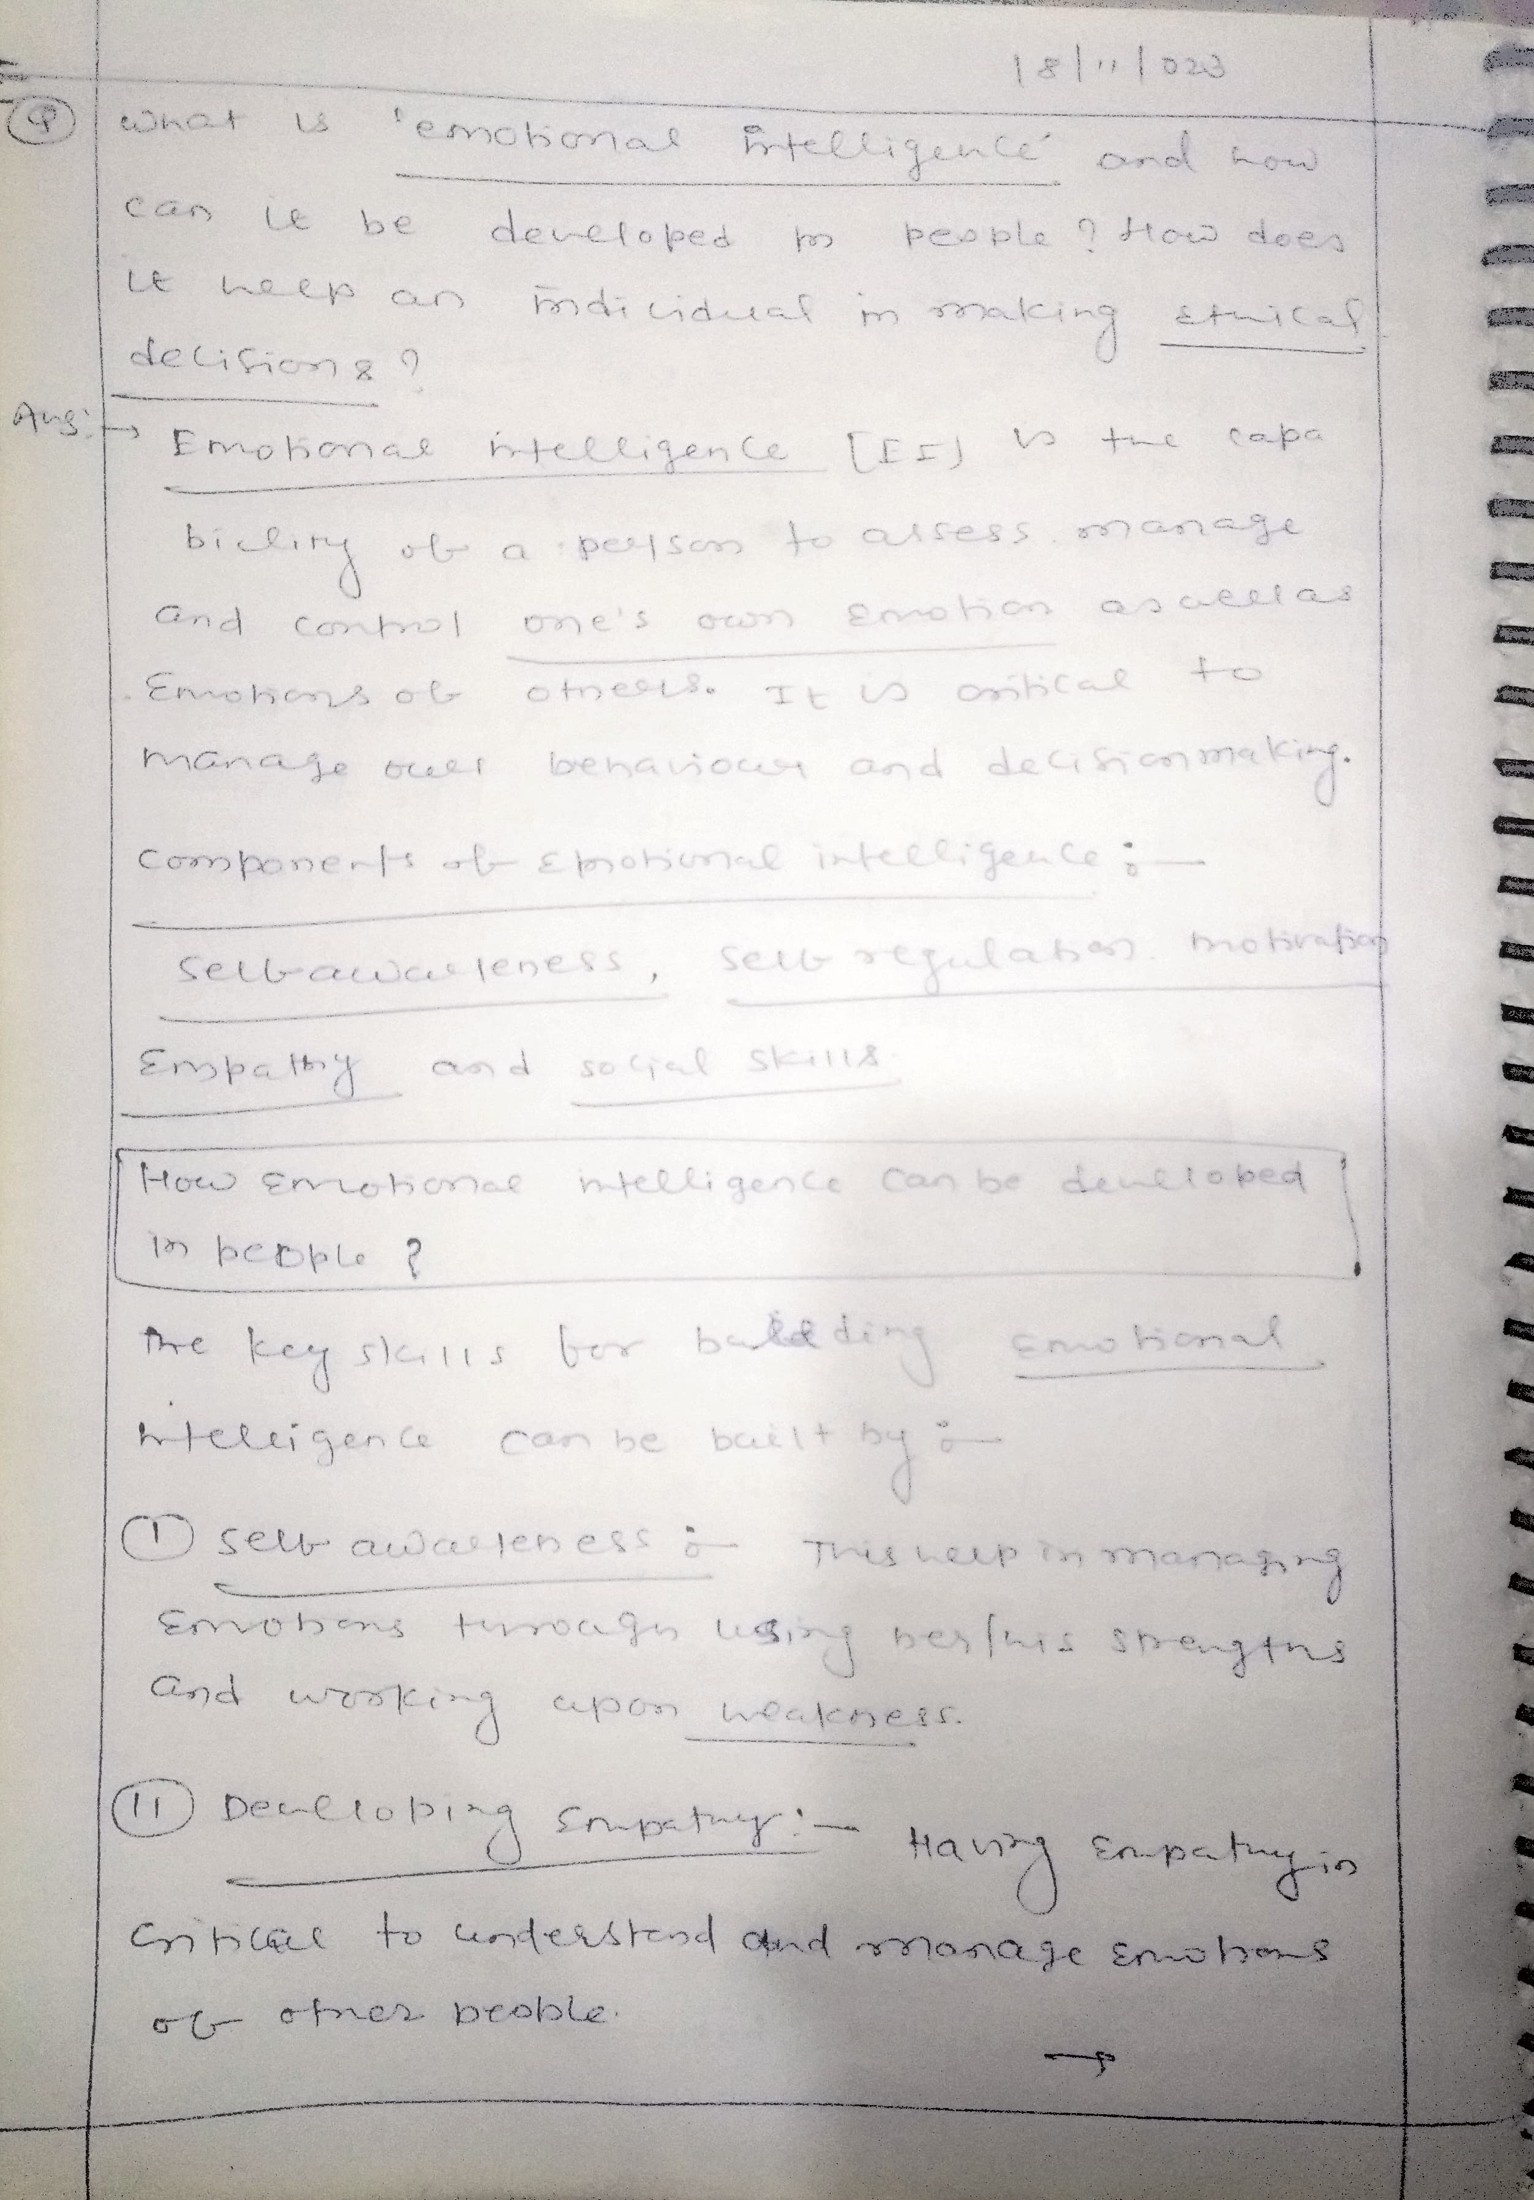 18/11/023
Q What is 'emotional intelligence' and how
can it be developed in people? How does
it help an individual in making Ethical
decisions?
Ans:→ Emotional intelligence [EI] is the capa
bility of a person to assess, manage
and control one's own Emotion as well as
Emotions of others. It is critical to
manage our behaviour and decision making.
Components of Emotional intelligence :-
Self awareness, Self regulation, motivation
Empathy and social skills
How Emotional intelligence can be developed
in people ?
The key skills for building Emotional
intelligence can be built by :-
I Self awareness :- This help in managing
Emotions through using her/his strengths
and working upon weakness.
II Developing Empathy :- Having Empathy is
Critical to understand and manage Emotions
of other people.
→